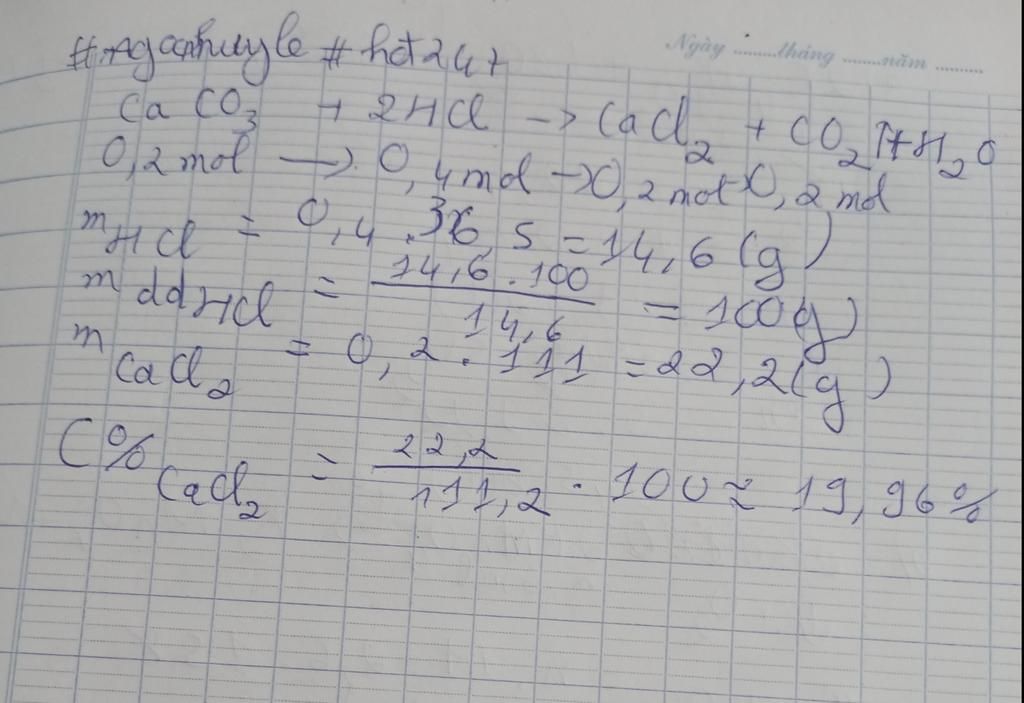 Ngày ........tháng ........năm ..........
CaCO3 + 2HCl -> CaCl2 + CO2↑ + H2O
0,2mol -> 0,4mol -> 0,2mol -> 0,2mol
mHCl = 0,4 . 36,5 = 14,6 (g)
mddHCl = 14,6 . 100 / 14,6 = 100(g)
mCaCl2 = 0,2 . 111 = 22,2(g)
C%CaCl2 = 22,2 / 111,2 . 100 ≈ 19,96%